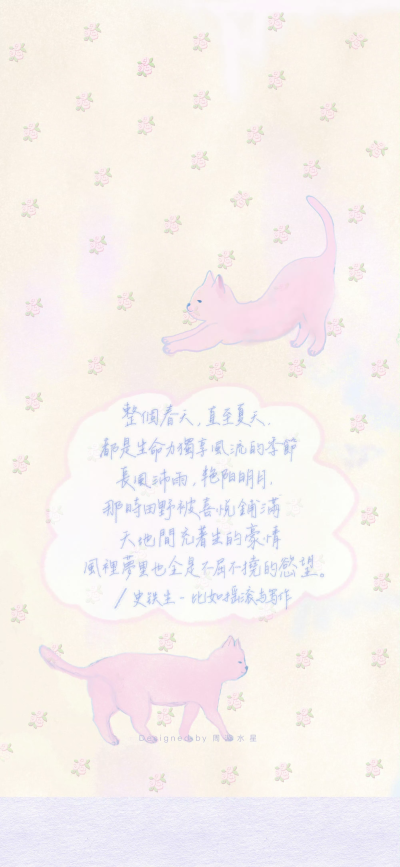 整個春天,直至夏天,
都是生命力獨享風流的季節
長風沛雨,艳阳明月,
那時田野被喜悦鋪滿
天地間充著生的豪情
風裡夢里也全是不屈不撓的慾望。
/史鉄生-比如摇滚与写作
Designed by 水星